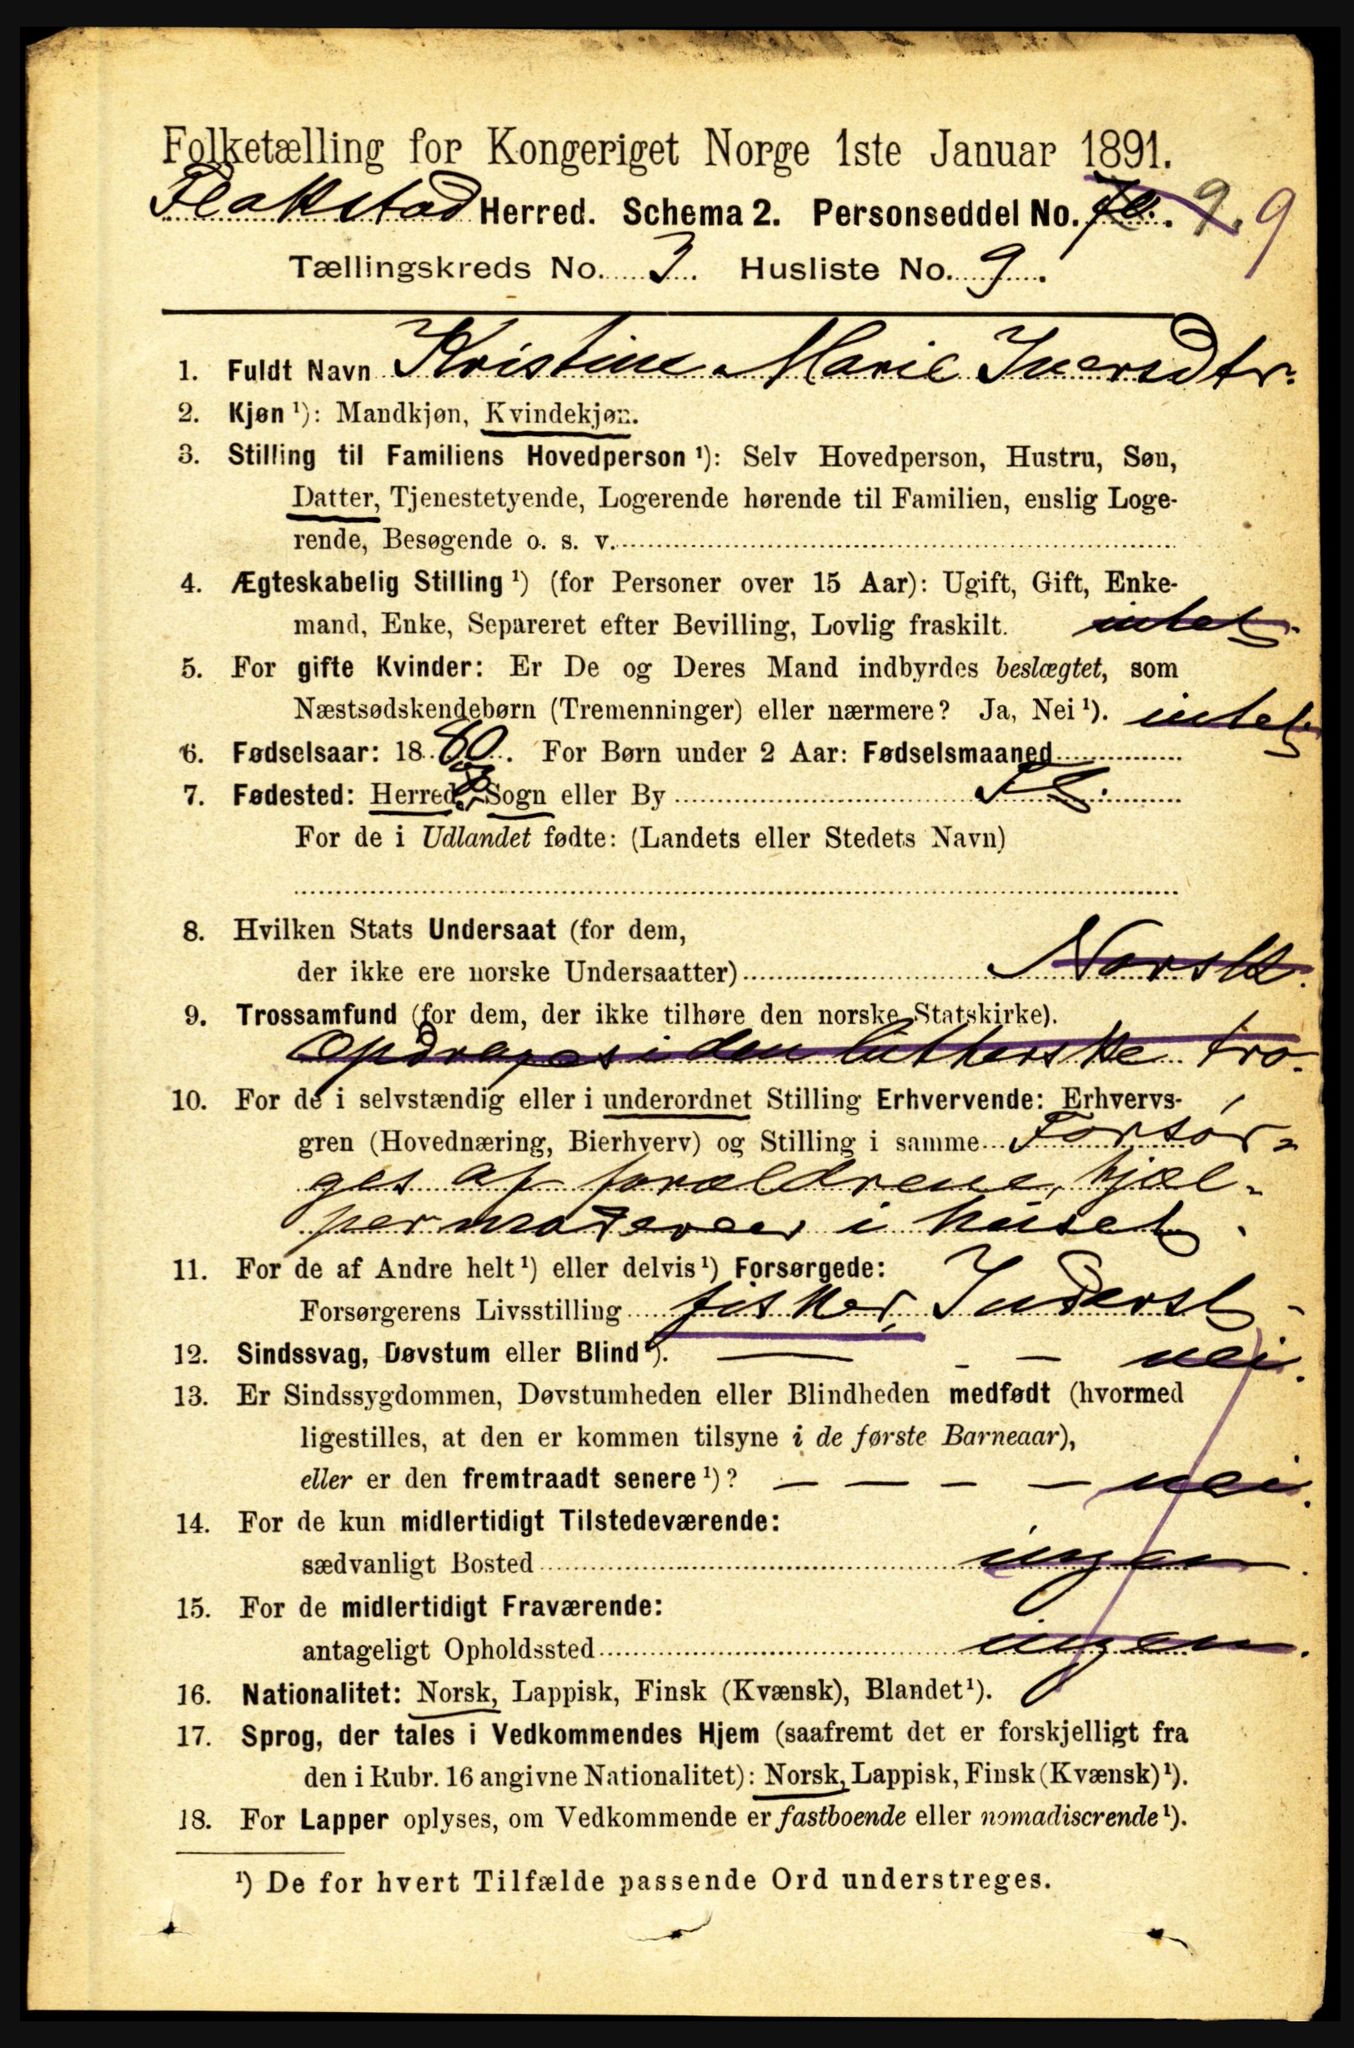 Folketælling for Kongeriget Norge 1ste Januar 1891.
Flakstad Herred. Schema 2. Personseddel No. 9. 9
Tællingskreds No. 3. Husliste No. 9.
1. Fuldt Navn Kristine Marie Iversdtr.
2. Kjøn ¹): Mandkjøn, Kvindekjøn.
3. Stilling til Familiens Hovedperson ¹): Selv Hovedperson, Hustru, Søn,
Datter, Tjenestetyende, Logerende hørende til Familien, enslig Loge-
rende, Besøgende o. s. v.
4. Ægteskabelig Stilling ¹) (for Personer over 15 Aar): Ugift, Gift, Enke-
mand, Enke, Separeret efter Bevilling, Lovlig fraskilt. intet.
5. For gifte Kvinder: Er De og Deres Mand indbyrdes beslægtet, som
Næstsødskendebørn (Tremenninger) eller nærmere? Ja, Nei ¹). intet
6. Fødselsaar: 1880. For Børn under 2 Aar: Fødselsmaaned
7. Fødested: Herred, & Sogn eller By Fl.
For de i Udlandet fødte: (Landets eller Stedets Navn)
8. Hvilken Stats Undersaat (for dem,
der ikke ere norske Undersaatter) Norsk.
9. Trossamfund (for dem, der ikke tilhøre den norske Statskirke).
Opdrages i den lutherske tro.
10. For de i selvstændig eller i underordnet Stilling Erhvervende: Erhvervs-
gren (Hovednæring, Bierhverv) og Stilling i samme Forsør-
ges af forældrene, hjæl-
per moderen i huset.
11. For de af Andre helt ¹) eller delvis ¹) Forsørgede:
Forsørgerens Livsstilling fisker, Inderst
12. Sindssvag, Døvstum eller Blind ¹). — - — nei.
13. Er Sindssygdommen, Døvstumheden eller Blindheden medfødt (hvormed
ligestilles, at den er kommen tilsyne i de første Barneaar),
eller er den fremtraadt senere ¹)? — — — — nei.
14. For de kun midlertidigt Tilstedeværende:
sædvanligt Bosted ingen.
15. For de midlertidigt Fraværende:
antageligt Opholdssted ingen.
16. Nationalitet: Norsk, Lappisk, Finsk (Kvænsk), Blandet ¹).
17. Sprog, der tales i Vedkommendes Hjem (saafremt det er forskjelligt fra
den i Rubr. 16 angivne Nationalitet): Norsk, Lappisk, Finsk (Kvænsk) ¹).
18. For Lapper oplyses, om Vedkommende er fastboende eller nomadiserende ¹).
¹) De for hvert Tilfælde passende Ord understreges.